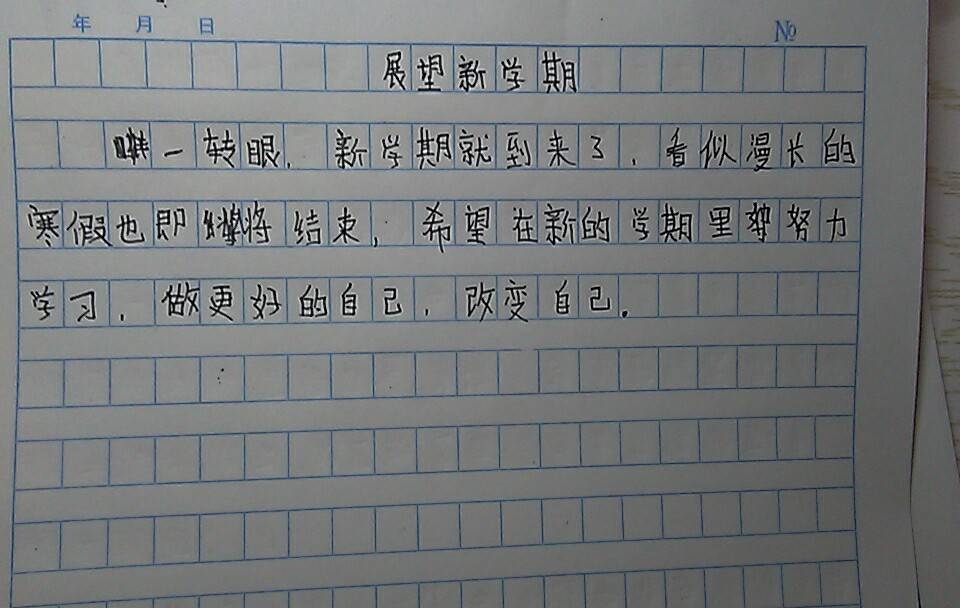 年 月 日 №
展望新学期
一转眼，新学期就到来了，看似漫长的
寒假也即将结束，希望在新的学期里努力
学习，做更好的自己，改变自己。